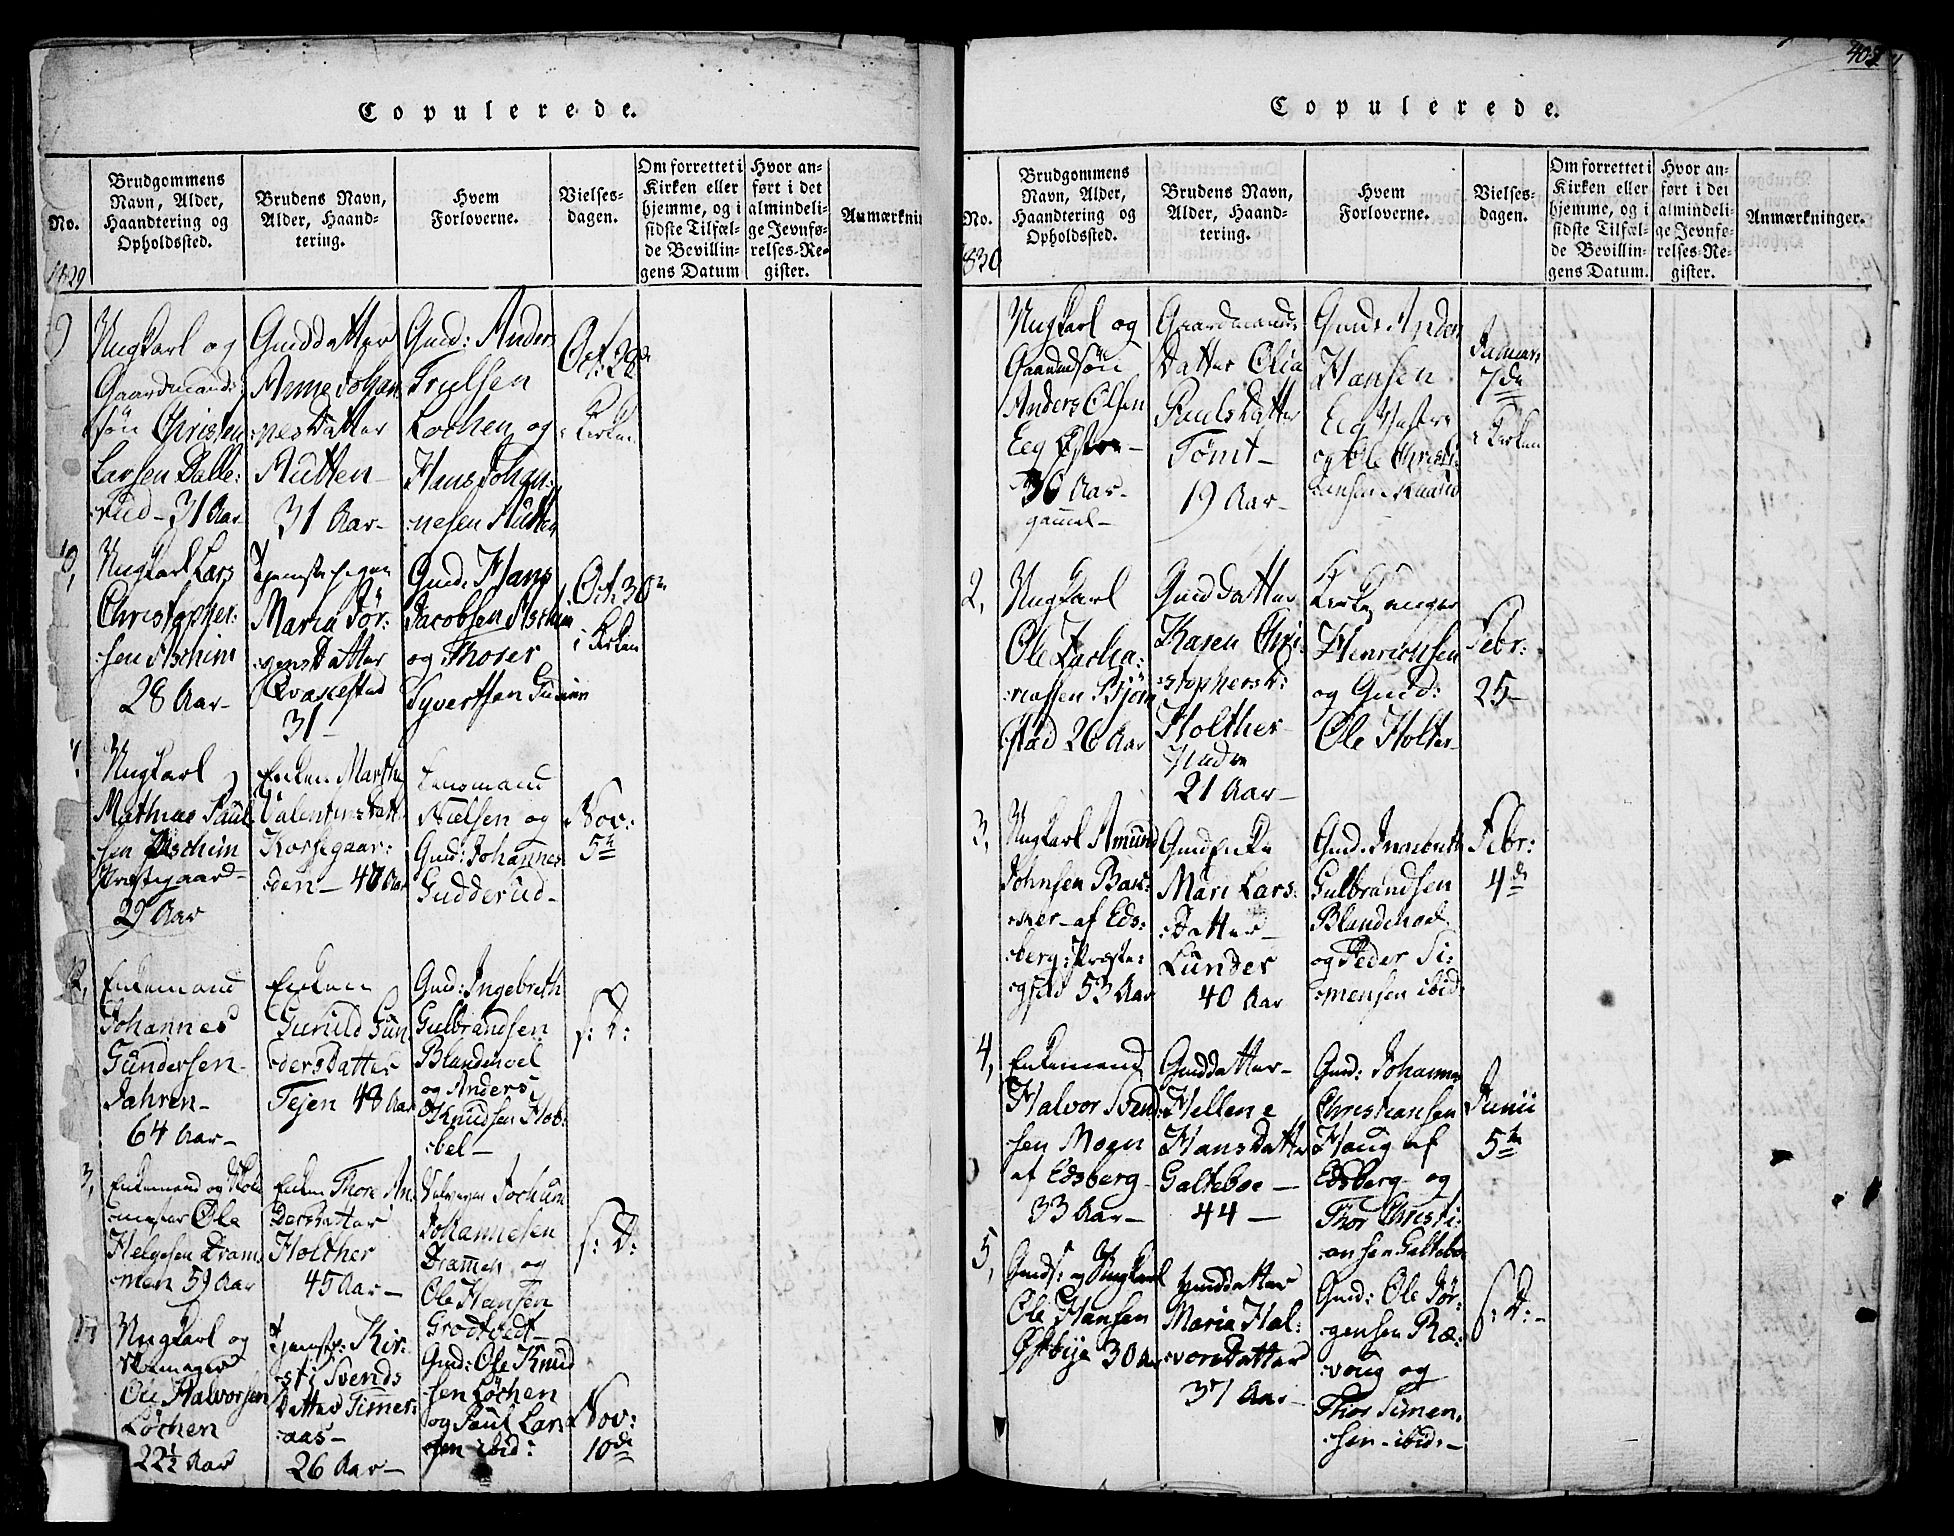 Copulerede.
No.
Brudgommens
Navn, Alder,
Haandtering og
Opholdssted.
Brudens Navn,
Alder, Haand-
tering.
Hvem
Forloverne.
Vielses-
dagen.
Om forrettet i
Kirken eller
hjemme, og i
sidste Tilfæl-
de Bevillin-
gens Datum
Hvor an-
ført i det
almindeli-
ge Jevnfø-
relses-Re-
gister.
Anmærknin
1829
9
Ungkarl og
Gaardmands
søn Christen
Larsen Dalle:
rud - 31 Aar
Gmddatter
Anne Johan
nesDatter
Rutten
31 Aar-
Gmd: Anders
Trulsen
Lochen og
Hans Johan:
nesen Rutten
Oct:
i Kirken
Ungkarl Lars
Christopher:
sen Aschim
28 Aar-
Tjenestepigen
Maria Jör:
gensDatter
Qvakestad
31-
Gmd. Hans
Jacobsen Aschim
og Thorer
Syvertsen
Oct. 30
i Kirken
Ungkarl
Mathias Paul
sen Aschim
Præstegaard
29 Aar
Enken Marthe
Valentinsdatt
Korsegaar:
den - 40 Aar
Lensmand
Nielsen og
Gmd: Johannes
Gudderud-
Nov:
5te
12,
Enkemand
Johannes
Gundersen
Jahren-
64 Aar-
Enken
Gunild Gun
dersDatter
Tejen 48 Aar
Gmd: Ingebreth
Gulbrandsen
Blandehoel
og Anders
Knudsen Hob:
bel-
s: D:
3,
Enkemand og Skole
mester Ole
Helgesen Dram
men 59 Aar
Enken Thore An
dersdatter
Holther
45 Aar-
Jochum
Johannesen
Drammen og
Ole Hansen
Grodtvedt-
s: D:
Ungkarl og
Skomager
Ole Halvorsen
Löchen
22½ Aar
Tjenestp: Kir:
sti Svends
Datter Timer:
aas-
26 Aar-
Gmd: Ole Knud
sen Löchen
og Paul Lar
sen ibid:
Nov:
10de
408
Copulerede.
No.
Brudgommens
Navn, Alder,
Haandtering og
Opholdssted.
Brudens Navn,
Alder, Haand-
tering.
Hvem
Forloverne.
Vielses-
dagen.
Om forrettet i
Kirken eller
hjemme, og i
sidste Tilfæl-
de Bevillin-
gens Datum.
Hvor an-
ført i det
almindeli-
ge Jevnfø-
relses-Re-
gister.
Anmærkninger.
1830
Ungkarl og
Gaardmdsön
Anders Olsen
Eeg Østre-
30 Aar-
gammel-
Gaardmands
Datter Olia
PaulsDatter
Tömt-
19 Aar-
Gmd: Anders
Hansen
Eeg Vestre
og Ole Christi:
Januari
7de
i Kirken
2,
Ungkarl
Ole Zacha:
riassen Björn
stad 26 Aar
Gmddatter
Karen Chri
stophersd:
Holther
21 Aar-
Kirkesanger
Henrichsen
og Gmd:
Ole Holter
Febr:
25-
3,
Ungkarl Amund
Johnsen Bak:
af Eds:
berg: Præste:
gjeld 53 Aar
Gmdsenke
Mari Lars:
Datter
Lunder
40 Aar
Gmd. Ingebreth
Gulbrandsen
Blandehoel
og Peder Si:
mensen ibid:
Febr:
4de
4,
Enkemand
Halvor Svend
sen Moen
af Edsberg
33 Aar-
Gmddatter-
Hellene
HansDatter
Galteboe-
44-
Gmd: Johannes
Christiansen
Haug af
Edsberg og
Thor Christi:
ansen Galteboe
Junii
5te
5,
Gmds: og Ungkarl
Ole Hansen
Østbye 30 Aar
Gmddatter
Maria Hal:
vorsDatter
37 Aar-
Gmd: Ole Jör:
gensen Ræ:
voug og
Thor Simen:
sen-ibid:-
s: D:-